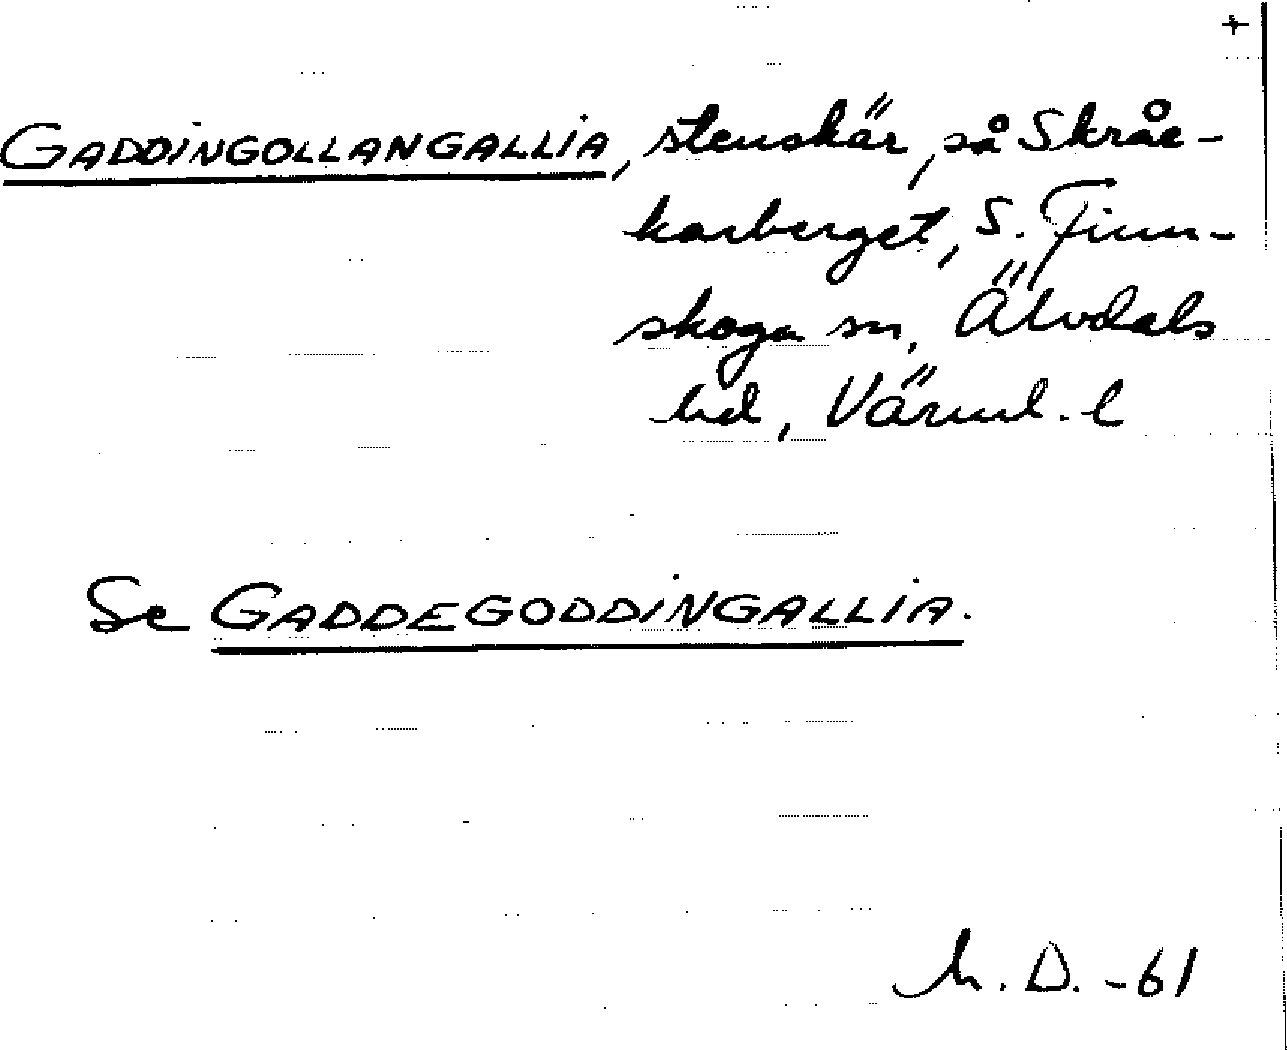 +
GADDINGOLLANGALLIA, stenskär, på Skråc-
karberget, S. Finn-
skoga sn, Älvdals
hd, Värml. l
Se GADDEGODDINGALLIA.
M. D. -61